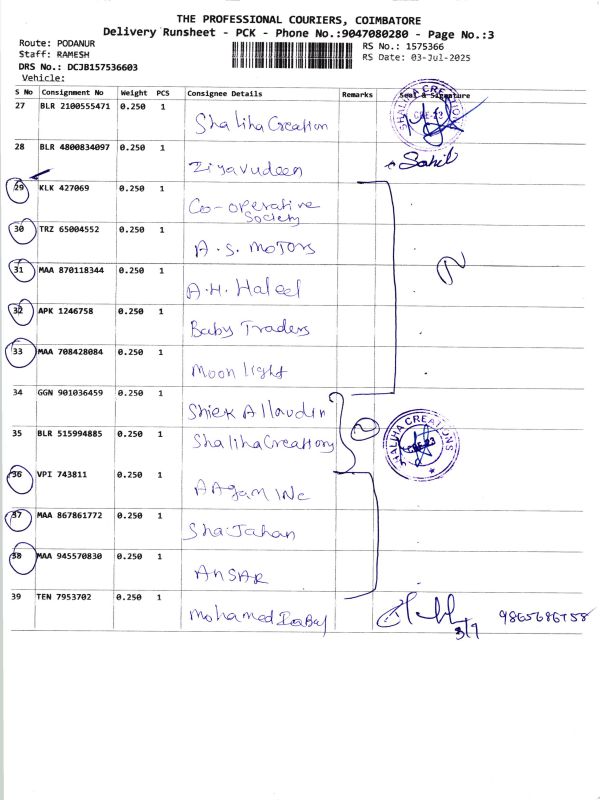 THE PROFESSIONAL COURIERS, COIMBATORE
Delivery Runsheet - PCK - Phone No.:9047080280 - Page No.:3
Route: PODANUR
Staff: RAMESH
DRS No.: DCJB157536603
Vehicle:
RS No.: 1575366
RS Date: 03-Jul-2025
S No Consignment No Weight PCS Consignee Details Remarks Seal & Signature
27 BLR 2100555471 0.250 1 Shaliha Creation
SHALIHA CREATIONS
CBE-23
28 BLR 4800834097 0.250 1 Ziyavudeen Sahil
29 KLK 427069 0.250 1 Co-operative
Society
30 TRZ 65004552 0.250 1 A.S. Motors
31 MAA 870118344 0.250 1 A.H. Haleel
32 APK 1246758 0.250 1 Baby Traders
33 MAA 708428084 0.250 1 Moon light
34 GGN 901036459 0.250 1 Shiek Allaudin
35 BLR 515994885 0.250 1 Shaliha Creations
SHALIHA CREATIONS
CBE-23
36 VPI 743811 0.250 1 AAgam INC
37 MAA 867861772 0.250 1 Sha Jahan
38 MAA 945570830 0.250 1 ANSAR
39 TEN 7953702 0.250 1 Mohamed 3/7 9865686758